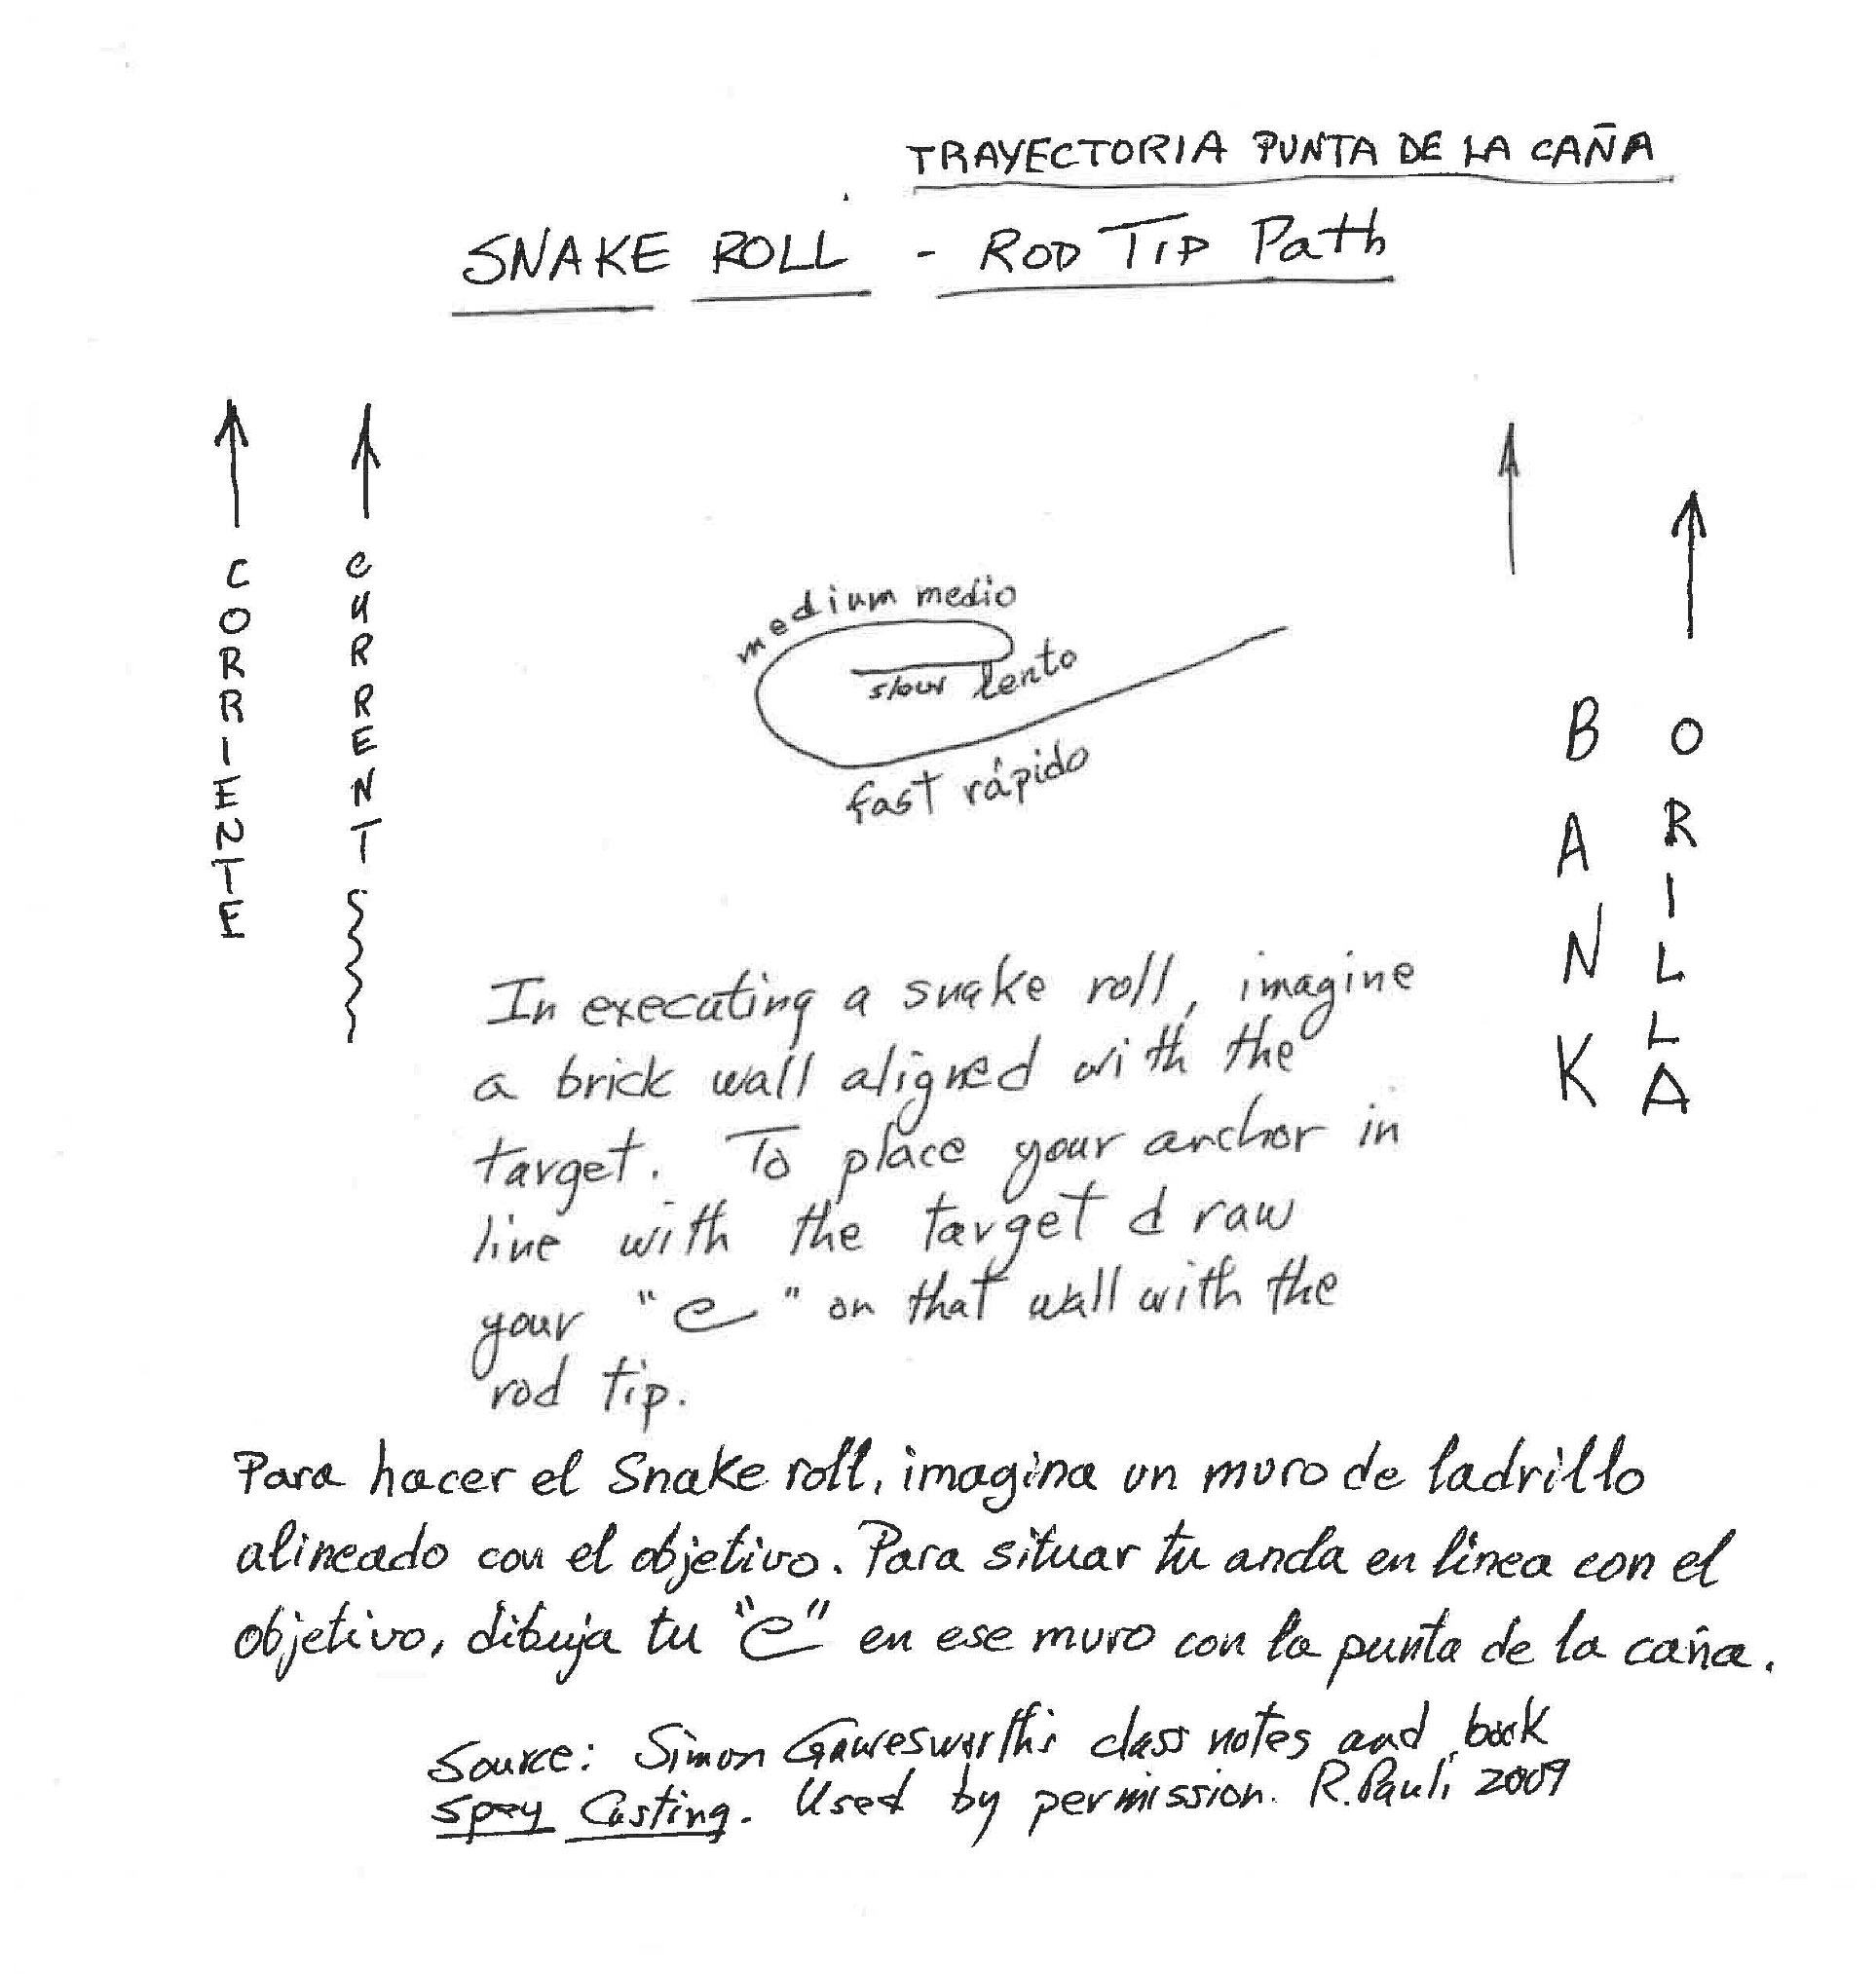 TRAYECTORIA PUNTA DE LA CAÑA
SNAKE ROLL - ROD TIP Path
CORRIENTE
CURRENT
medium medio
slow lento
fast rápido
BANK
ORILLA
In executing a snake roll, imagine
a brick wall aligned with the
target. To place your anchor in
line with the target draw
your "e" on that wall with the
rod tip.
Para hacer el Snake roll, imagina un muro de ladrillo
alineado con el objetivo. Para situar tu ancla en linea con el
objetivo, dibuja tu "e" en ese muro con la punta de la caña.
Source: Simon Gawesworth's class notes and book
Spey Casting. Used by permission. R. Pauli 2009